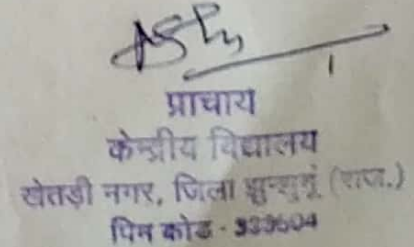 प्राचार्य
केन्द्रीय विद्यालय
खेतड़ी नगर, जिला झुन्झुनूं (राज.)
पिन कोड - 333504